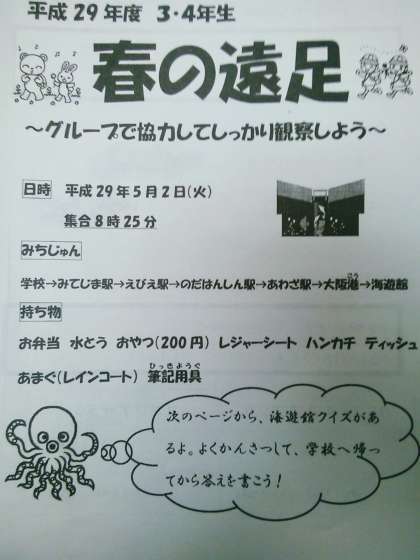 平成29年度 3・4年生
春の遠足
～グループで協力してしっかり観察しよう～
日時 平成29年5月2日(火)
集合8時25分
みちじゅん
学校→みてじま駅→えびえ駅→のだはんしん駅→あわざ駅→大阪港→海遊館
こう
持ち物
お弁当 水とう おやつ(200円) レジャーシート ハンカチ ティッシュ
ひっきようぐ
あまぐ(レインコート) 筆記用具
次のページから、海遊館クイズがあ
るよ。よくかんさつして、学校へ帰っ
てから答えを書こう!